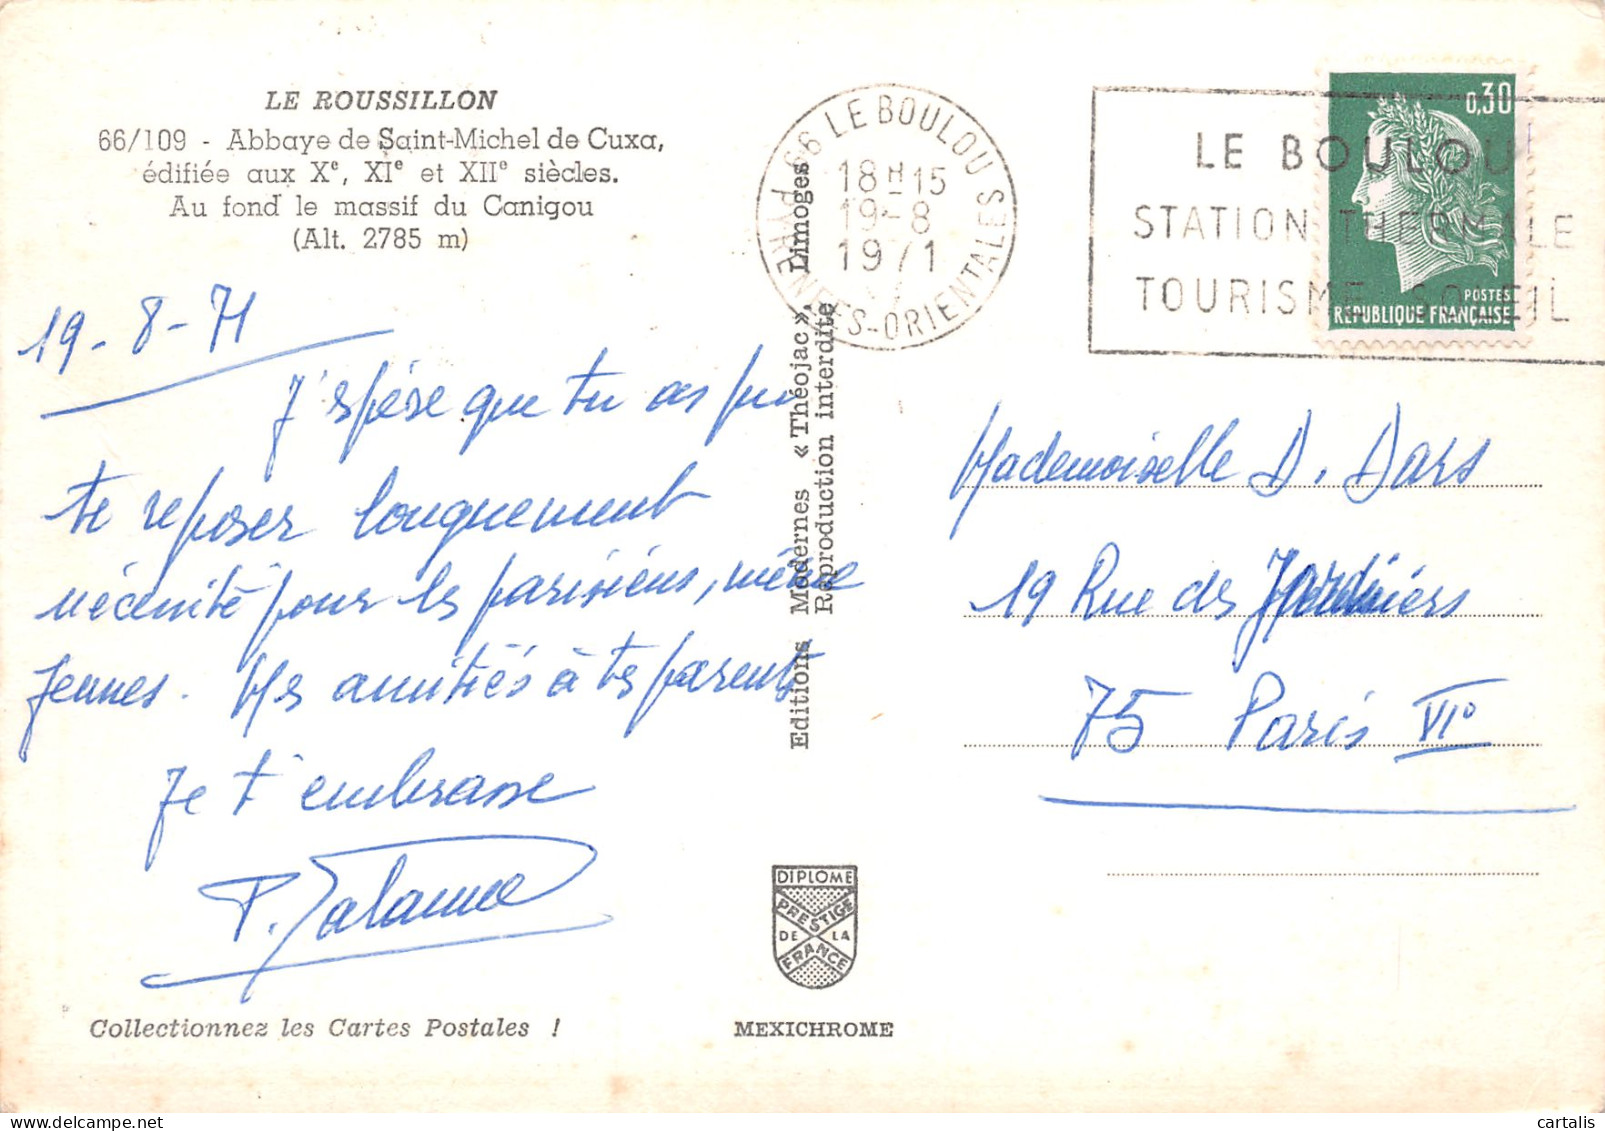 LE ROUSSILLON
66/109 - Abbaye de Saint-Michel de Cuxa,
édifiée aux Xe, XIe et XIIe siècles.
Au fond le massif du Canigou
(Alt. 2785 m)
19-8-71
J'espère que tu as pu
te reposer longuement
nécessité pour les parisiens, même
jeunes. Mes amitiés à tes parents
Je t'embrasse
Collectionnez les Cartes Postales !
Editions Modernes « Théojac », Limoges
Reproduction interdite
DIPLOME
PRESTIGE
DE LA
FRANCE
MEXICHROME
66 LE BOULOU
18H15
19-8
1971
PYRENEES-ORIENTALES
LE BOULOU
STATION THERMALE
TOURISME SOLEIL
0,30
POSTES
REPUBLIQUE FRANÇAISE
Mademoiselle D. Dars
19 Rue des
75 Paris VI°
cartalis